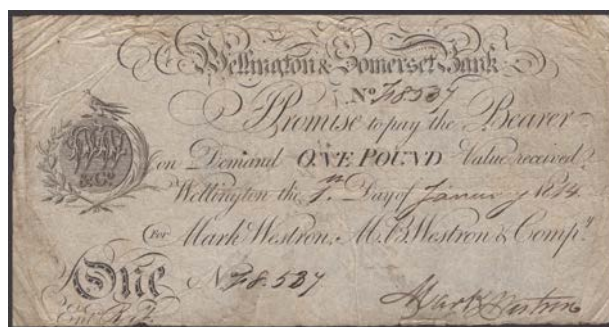 Wellington & Somerset Bank
No. F8537
I Promise to pay the Bearer
on Demand ONE POUND Value received
Wellington the 1st Day of January 1814
For Mark Westron, M. B. Westron & Compy.
& Co.
One
No F8.537
Mark Westron